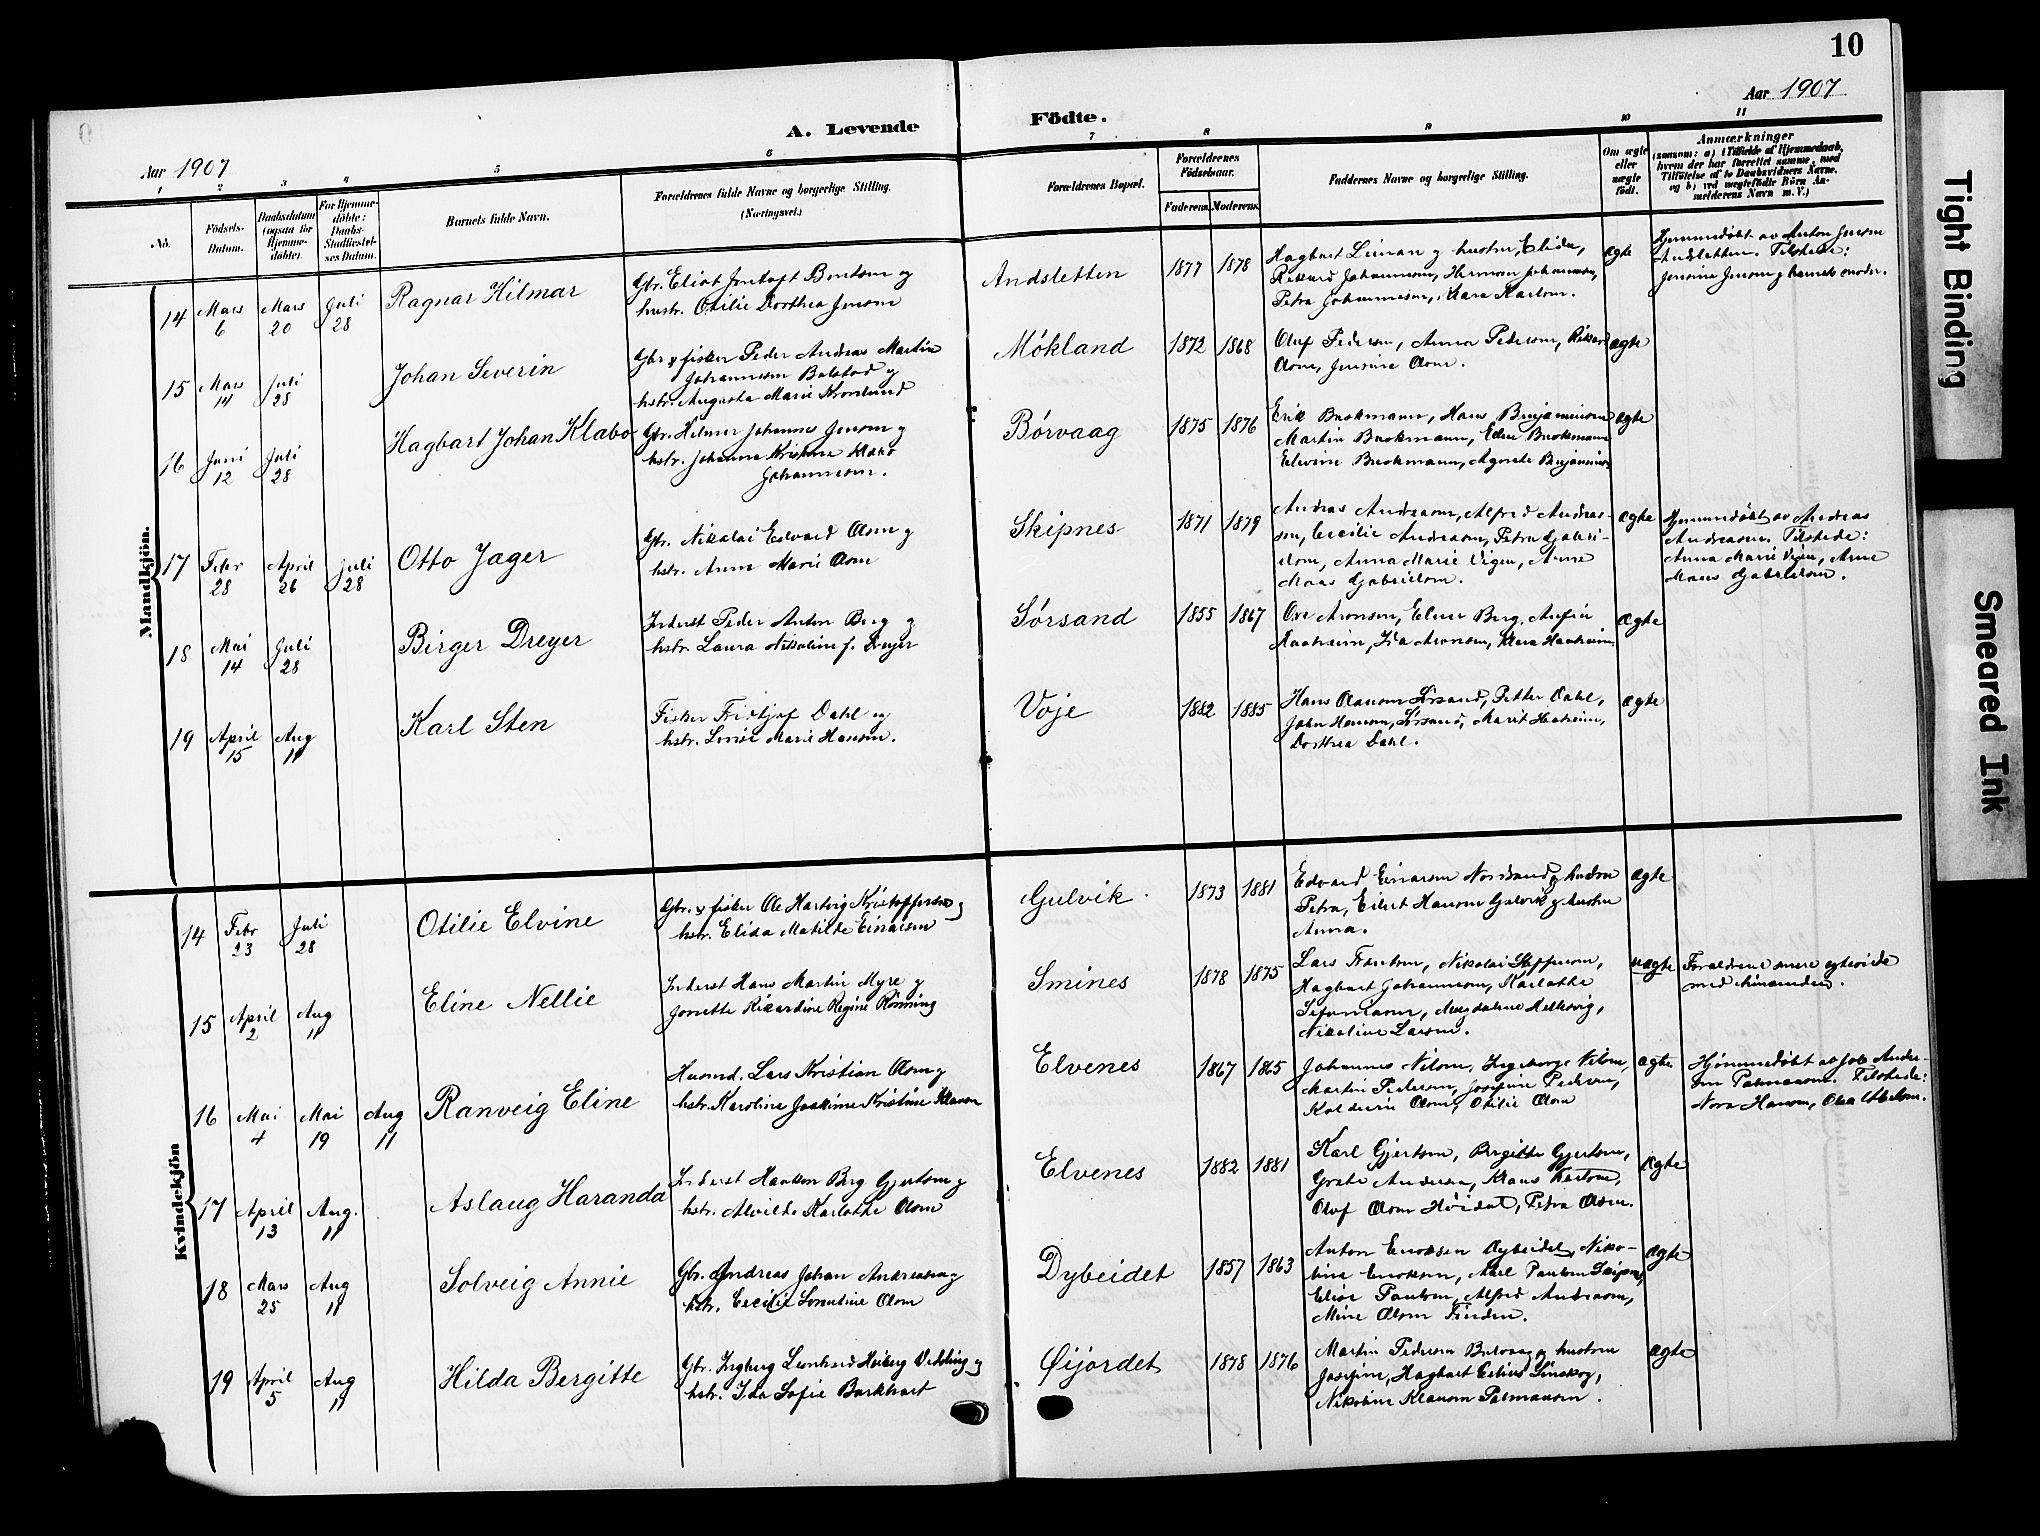 10
Aar 1907
A. Levende Födte.
Aar 1907
1 2 3 4 5 6 7 8 9 10 11
No.
Födsels-Datum.
Daabsdatum (ogsaa for Hjemme-döbte).
For Hjemme-döbte: Daabs-Stadfæstel-ses Datum.
Barnets fulde Navn.
Forældrenes fulde Navne og borgerlige Stilling.
(Næringsvei.)
Forældrenes Bopæl.
Forældrenes Födselsaar.
Faderens. Moderens.
Faddernes Navne og borgerlige Stilling.
Om ægte eller uægte født.
Anmærkninger
(saasom: a) i Tilfælde af Hjemmedaab, hvem der har forrettet samme, med Tilföielse af to Daabsvidners Navne, og b) ved uægtefödte Börn An-melderens Navn m. V.)
Mandkjön.
14 Mars 6 Mars 20 Juli 28 Ragnar Hilmar
Gbr. Eliot Jentoft Bentsen og
hustr. Otilie Dorthea Jensen
Andsletten 1877 1878
Hagbart Liman og hustru, Elida,
Rikard Johannesen, Herman Johannesen,
Petra Johannesen, Klara Karlsen.
ægte
Hjemmedøbt av Anton Jensen
Andsletten. Tilstede:
Jensine Jensen og barnets moder.
15 Mars 14 Juli 28 Johan Severin
Gbr. & fisker Peder Andreas Martin
Johannesen Bolstad og
hstr. Augusta Marie Kronlund
Møkland 1872 1868
Oluf Pedersen, Anna Pedersen, Rikard
Olsen, Jensine Olsen.
ægte
16 Juni 12 Juli 28 Hagbart Johan Klabo
Gbr. Helmer Johannes Jensen og
hstr. Johanna Kristine Klabo
Johannesen.
Børvaag 1875 1876
Erik Brokmann, Hans Benjaminsen
Martin Brokmann, Edin Brokmann
Elevine Brokmann, Agnete Benjaminsen
ægte
17 Febr 28 April 26 Juli 28 Otto Jager
Gbr. Nikolai Edvard Olsen og
hstr. Anna Marie Olsen
Skipnes 1871 1879
Andreas Andreasen, Alfred Andrea-
sen, Cecilie Andreasen, Petra Gabri-
elsen, Anna Marie Vigen, Anne
Maas Gabrielsen.
ægte
Hjemmedøbt av Andreas
Andreasen. Tilstede:
Anna Marie Vigen, Anne
Maas Gabrielsen.
18 Mai 14 Juli 28 Birger Dreyer
Inderst Peder Anton Berg og
hstr. Laura Nikoline f. Dreyer
Sørsand 1855 1867
Ove Aronsen, Elmer Berg, Anfin
Haaheim, Ida Aronsen, Klara Haaheim
ægte
19 April 15 Aug 11 Karl Sten
Fisker Fridtjof Dahl og
hstr. Lovise Marie Hansen.
Voje 1882 1885
Hans Olausen Sørsand, Petter Dahl,
John Hansen, Sørsand, Marit Haaheim,
Dorthea Dahl.
ægte
Kvindekjön
14 Febr 23 Juli 28 Otilie Elvine
Gbr. & fisker Ole Hartvig Kristoffersen og
hstr. Elida Matilde Einarsen
Gulvik. 1873 1881
Edvard Einarsen Nordsand og hustru
Petra, Eilert Hansen Gulvik og hustru
Anna.
ægte
15 April 2 Aug 11 Eline Nellie
Inderst Hans Martin Myre og
Jonette Rikardine Regine Rønning
Smines 1878 1875
Lars Frantsen, Nikolai Steffensen,
Hagbart Johannesen, Karlotte
Magdalene Melkevig,
Nikoline Larsen.
uægte
Forældrene senere egteviede
med hinanden.
16 Mai 4 Mai 19 Aug 11 Ranveig Eline
Husmd. Lars Kristian Olsen og
hstr. Karoline Joakime Kristine Klausen
Elvenes 1867 1865
Johannes Nilsen, Ingeborg Nilsen,
Martin Pedersen, Josefine Pedersen,
Olsen, Otilie Olsen
ægte
Hjemmedøbt af Job Ander-
sen Pahnausen. Tilstede:
Nora Hansen,
17 April 13 Aug. 11 Aslaug Haranda
Inderst Haakon Berg Gjertsen og
hstr. Alvilde Karlotte Olsen
Elvenes 1882 1881
Karl Gjertsen, Bergitte Gjertsen,
Grete Andersen, Klaus Karlsen,
Oluf Olsen Høidal, Petra Olsen.
ægte
18 Mars 25 Aug 11 Solveig Annie
Gbr. Andreas Johan Andreasen og
hstr. Cecilie Lorentine Olsen
Dybeidet 1857 1863
Anton Enoksen Dybeidet, Niko-
line Enoksen, Axel Paulsen Skipnes,
Elise Paulsen, Alfred Andreasen,
Mine Olsen Finden.
ægte
19 April 5 Aug 11 Hilda Bergitte
Gbr. Ingberg Leonhard Heiberg Vedding og
hstr. Ida Sofie Barkhart
Øijordet 1878 1876
Martin Pedersen Børvaag og hustru
Josefine, Hagbart Edius Sinskog,
Nikoline Klausen Pahnausen.
ægte
Tight Binding
Smeared Ink